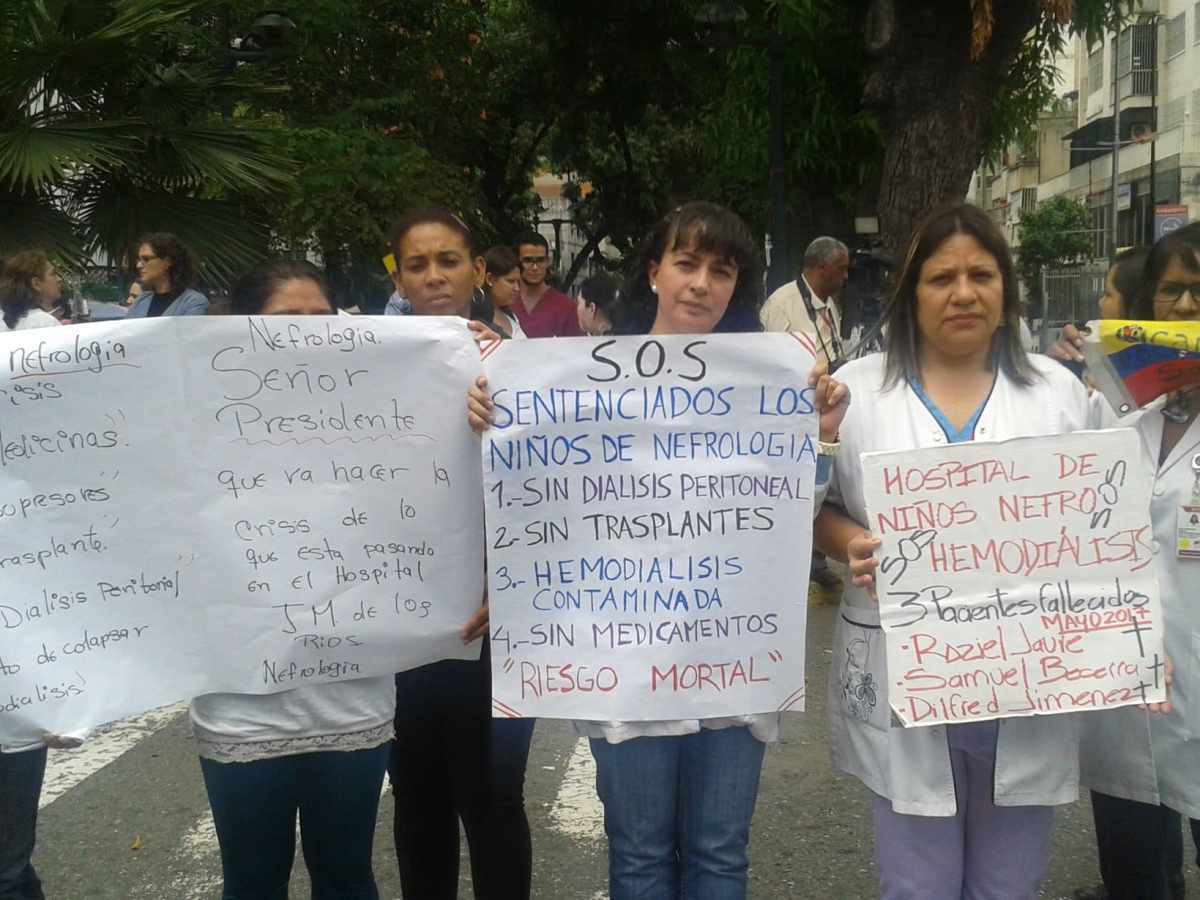 Nefrologia
Medicinas.
trasplante.
Dialisis Peritorial
de colapsar
Nefrologia.
SEñOR
Presidente
que va hacer la
Crisis de lo
que esta pasando
en el Hospital
JM de los
Rios
Nefrologia
S.O.S
SENTENCIADOS LOS
NIÑOS DE NEFROLOGIA
1.-SIN DIALISIS PERITONEAL
2.-SIN TRASPLANTES
3.-HEMODIALISIS
CONTAMINADA
4.-SIN MEDICAMENTOS
"RIESGO MORTAL"
HOSPITAL DE
NIÑOS NEFRO
SOS
SOS HEMODIÁLISIS
3 Pacientes fallecidos
MAYO 2017
• Raziel Jaure
• Samuel Becerra
• Dilfred Jimenez